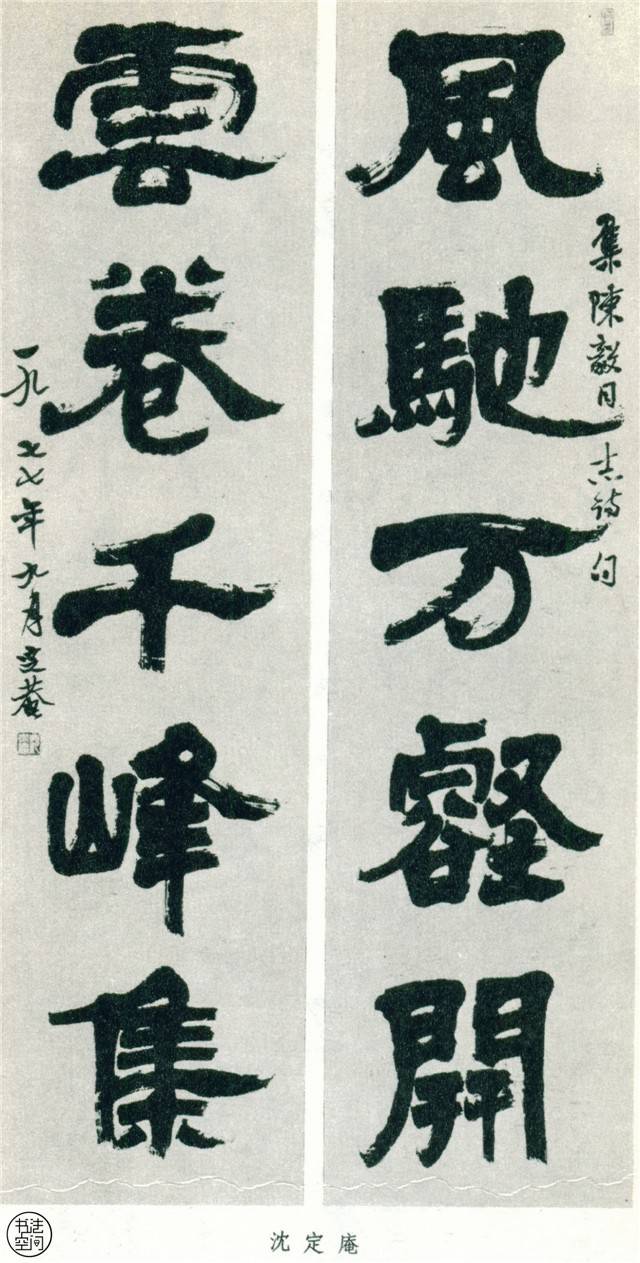 風馳万壑開
集陳毅同志詩句
雲卷千峰集
一九七七年九月定菴
沈定庵
书法空间